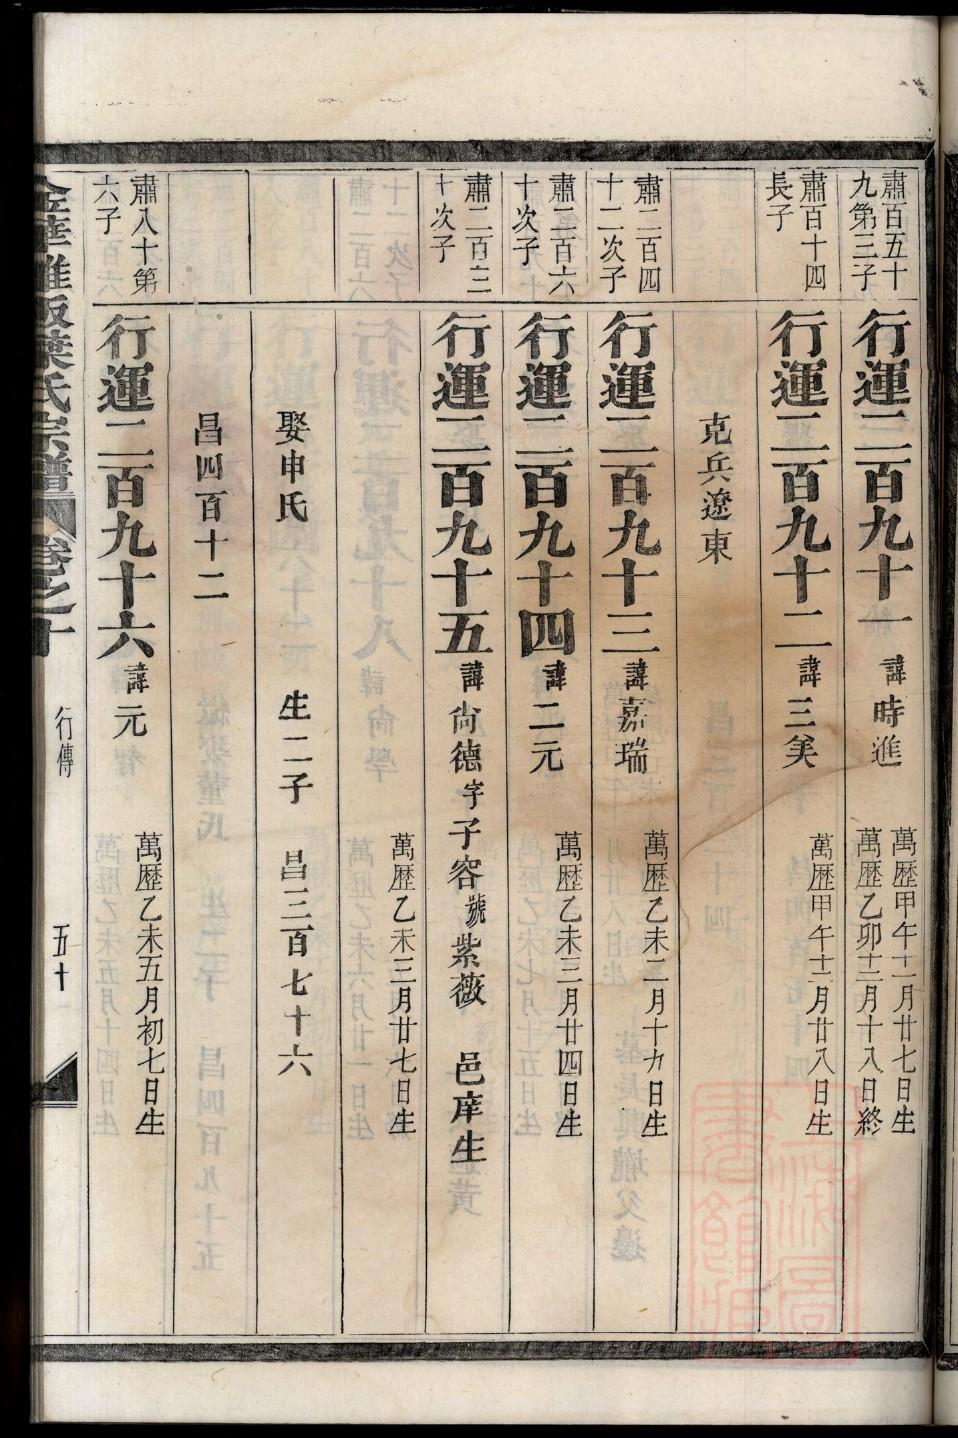 肅百五十
九第三子
行運二百九十一
諱時進
萬歷甲午十一月廿七日生
萬歷乙卯十二月十八日終
肅百十四
長子
行運二百九十二
諱三美
萬歷甲午十二月廿八日生
克兵遼東
肅二百四
十二次子
行運二百九十三
諱嘉瑞
萬歷乙未二月十九日生
肅二百六
十次子
行運二百九十四
諱二元
萬歷乙未三月廿四日生
肅二百三
十次子
行運二百九十五
諱尙德字子容號紫薇 邑庠生
萬歷乙未三月廿七日生
娶申氏 生二子 昌三百七十六
昌四百十二
肅八十第
六子
行運二百九十六
諱元
萬歷乙未五月初七日生
葉氏宗譜 卷之十 行傳 五十